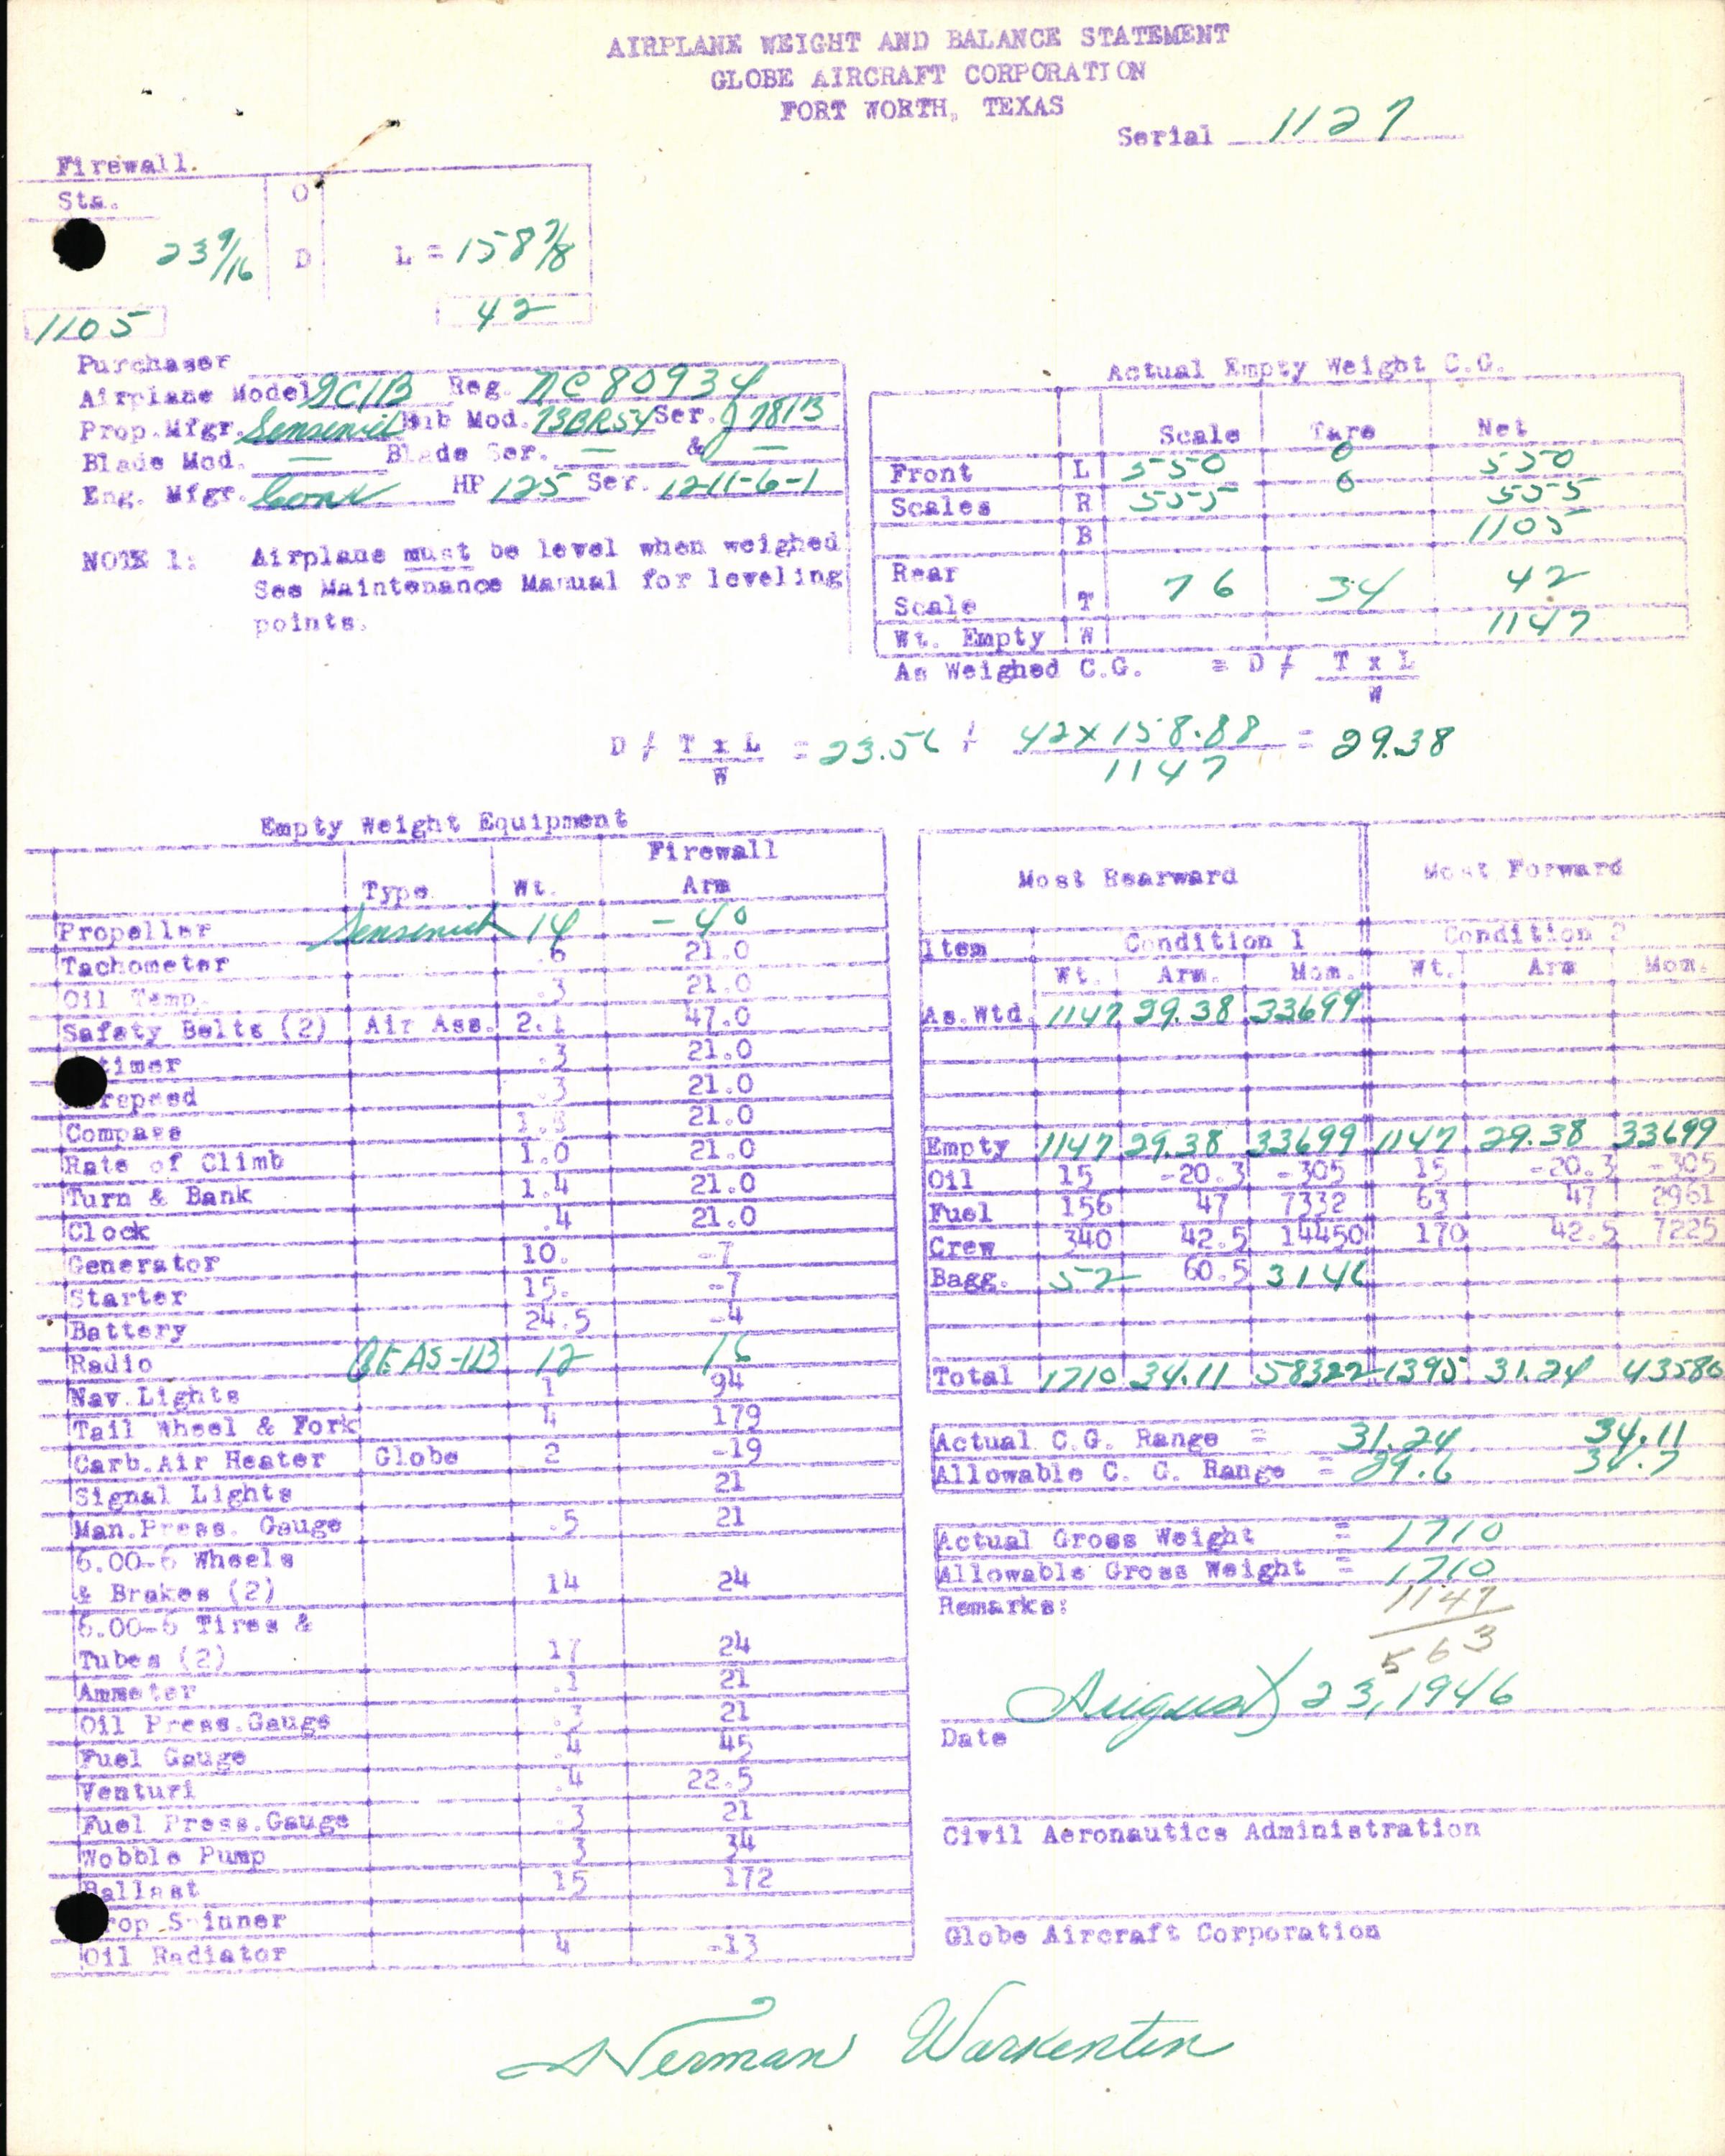 AIRPLANE WEIGHT AND BALANCE STATEMENT
GLOBE AIRCRAFT CORPORATION
FORT WORTH, TEXAS
Serial 1127
Firewall.
Sta. O
23 9/16 D L = 158 7/8
1105 42
Purchaser
Airplane Model GC1B Reg. NC 80934
Prop.Mfgr. Sensenich Hub Mod. 73BR54 Ser. 7813
Blade Mod. — Blade Ser. — & —
Eng. Mfgr. Cont HP 125 Ser. 12-11-6-1
NOTE 1: Airplane must be level when weighed
See Maintenance Manual for leveling
points.
Actual Empty Weight C.G.
Scale Tare Net
Front L 550 0 550
Scales R 555 0 555
B 1105
Rear
Scale T 76 34 42
Wt. Empty W 1147
As Weighed C.G. = D ≠ T x L
W
D ≠ T x L = 23.56 + 42 x 158.88 = 29.38
W 1147
Empty Weight Equipment
Type Wt. Firewall Arm
Propeller Sensenich 14 -40
Tachometer .6 21.0
Oil Temp. .3 21.0
Safety Belts (2) Air Ass. 2.1 47.0
timer .3 21.0
rspeed .3 21.0
Compass 21.0
Rate of Climb 1.0 21.0
Turn & Bank 1.4 21.0
Clock .4 21.0
Generator 10. -7
Starter 15. -7
Battery 24.5 -4
Radio GE AS-1B 12 16
Nav.Lights 1 94
Tail Wheel & Fork 4 179
Carb.Air Heater Globe 2 -19
Signal Lights 21
Man.Press. Gauge .5 21
6.00-6 Wheels
& Brakes (2) 14 24
6.00-6 Tires &
Tubes (2) 17 24
Ammeter .1 21
Oil Press.Gauge .3 21
Fuel Gauge .4 45
Venturi .4 22.5
Fuel Press.Gauge .3 21
Wobble Pump 3 34
Ballast 15 172
rop Spinner
Oil Radiator 4 -13
Most Rearward Most Forward
Item Condition 1 Condition 2
Wt. Arm. Mom. Wt. Arm Mom.
As.Wtd. 1147 29.38 33699
Empty 1147 29.38 33699 1147 29.38 33699
Oil 15 -20.3 -305 15 -20.3 -305
Fuel 156 47 7332 63 47 2961
Crew 340 42.5 14450 170 42.5 7225
Bagg. 52 60.5 3146
Total 1710 34.11 58322 1395 31.24 43580
Actual C.G. Range = 31.24 34.11
Allowable C. G. Range = 29.6 34.7
Actual Gross Weight = 1710
Allowable Gross Weight = 1710
Remarks: 1147
563
August 23, 1946
Date
Civil Aeronautics Administration
Globe Aircraft Corporation
Herman Warkentin